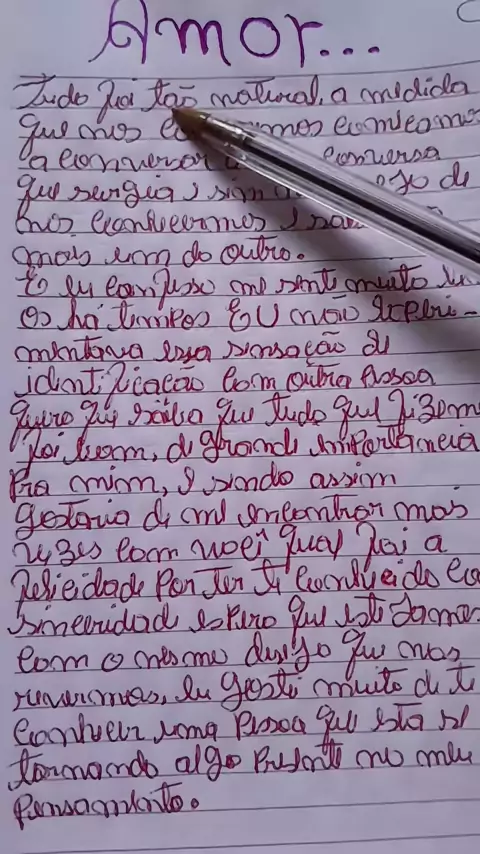 Amor...
Tudo foi tão natural, a medida
que nos começamos
a conversar conversa
que surgia, e sim de
nos conhecermos e
mais um do outro.
E eu confesso me senti muito
Os há tempos EU não experi-
mentava essa sensação de
identificação com outra Pessoa
quero que saiba que tudo que fizem
foi bom, de grande importância
Pra mim, e sendo assim
gostaria de me encontrar mais
vezes com você foi a
felicidade Por Ter Te conhecido
sinceridade espero que
com o mesmo desejo que nos
revermos, eu gostei muito de te
conhecer uma Pessoa que esta se
tornando algo Presente no meu
Pensamento.